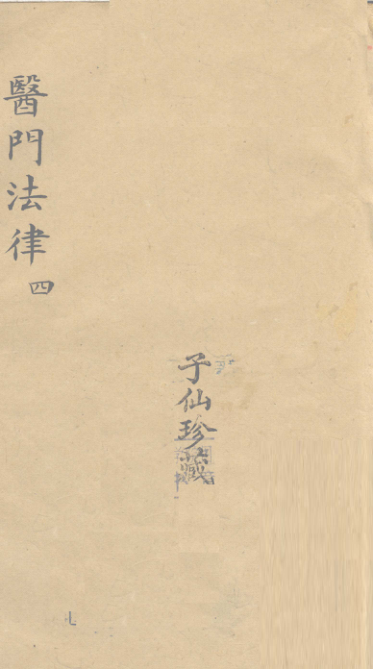 醫門法律 四
子仙珍藏
七